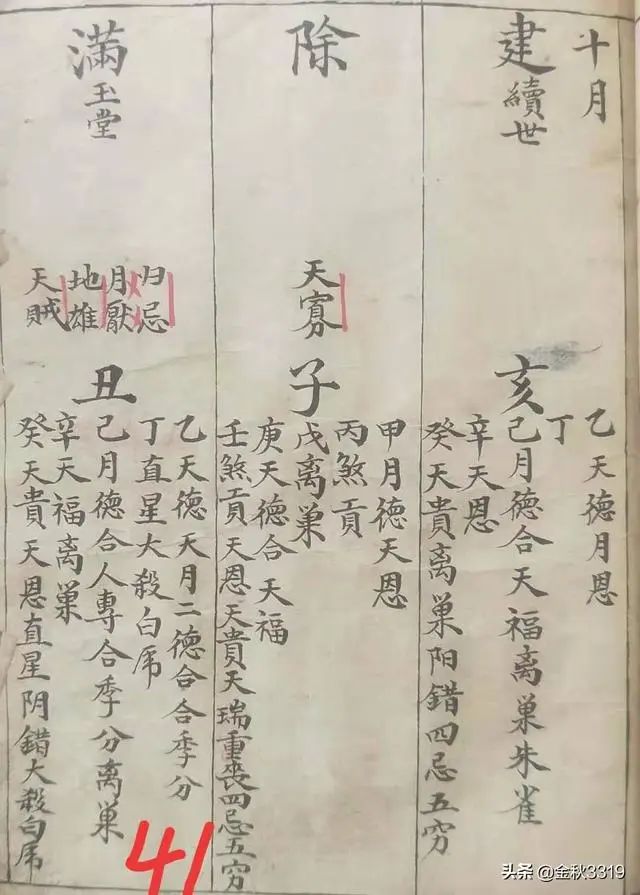 十月
建
續世
亥
乙天德月恩
丁
己月德合天福離巢朱雀
辛天恩
癸天貴離巢阳錯四忌五穷
除
天寡
子
甲月德天恩
丙煞貢
戊離巢
庚天德合天福
壬煞貢天恩天貴天瑞重喪四忌五穷
滿
玉堂
归忌
月厭
地雄
天賊
丑
乙天德天月二德合合季分
丁直星大殺白虎
己月德合人專合季分離巢
辛天福離巢
癸天貴天恩直星阴錯大殺白虎
41
头条 @金秋3319